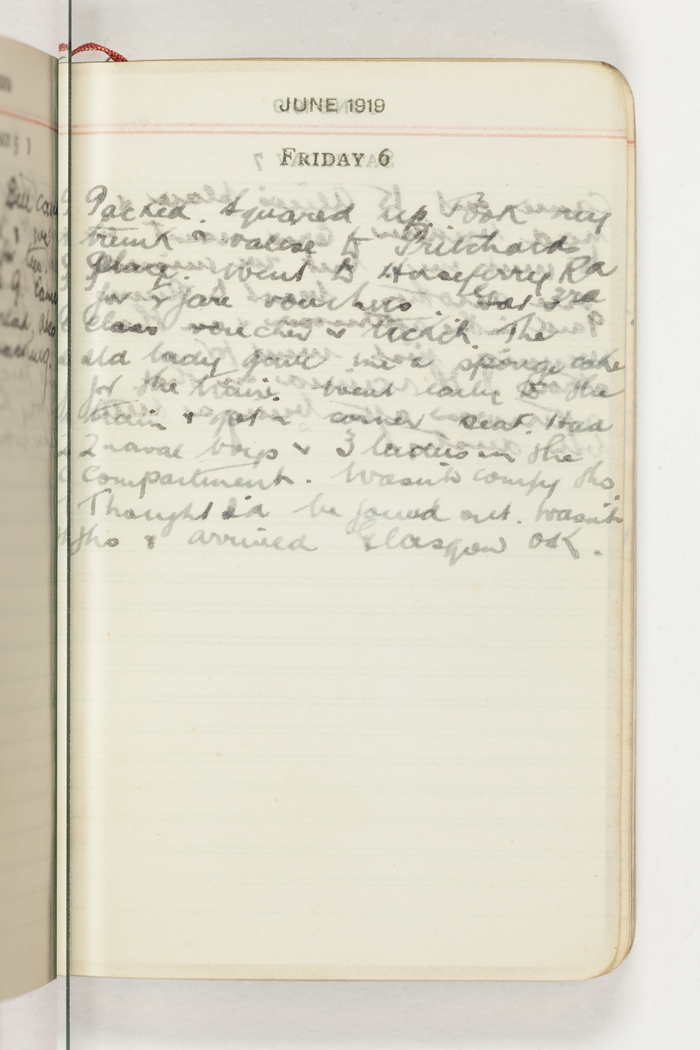 JUNE 1919
FRIDAY 6
Packed. Squared up. Took my
trunk & valise to Pritchards
place. Went to Horseferry Rd
for fare vouchers. Got 3rd
class voucher & ticket. The
old lady gave me a sponge cake
for the train. Went early to the
train & got a corner seat. Had
2 naval boys & 3 ladies in the
compartment. Wasn't comfy tho.
Thought I'd be found out. Wasn't
tho & arrived Glasgow OK.